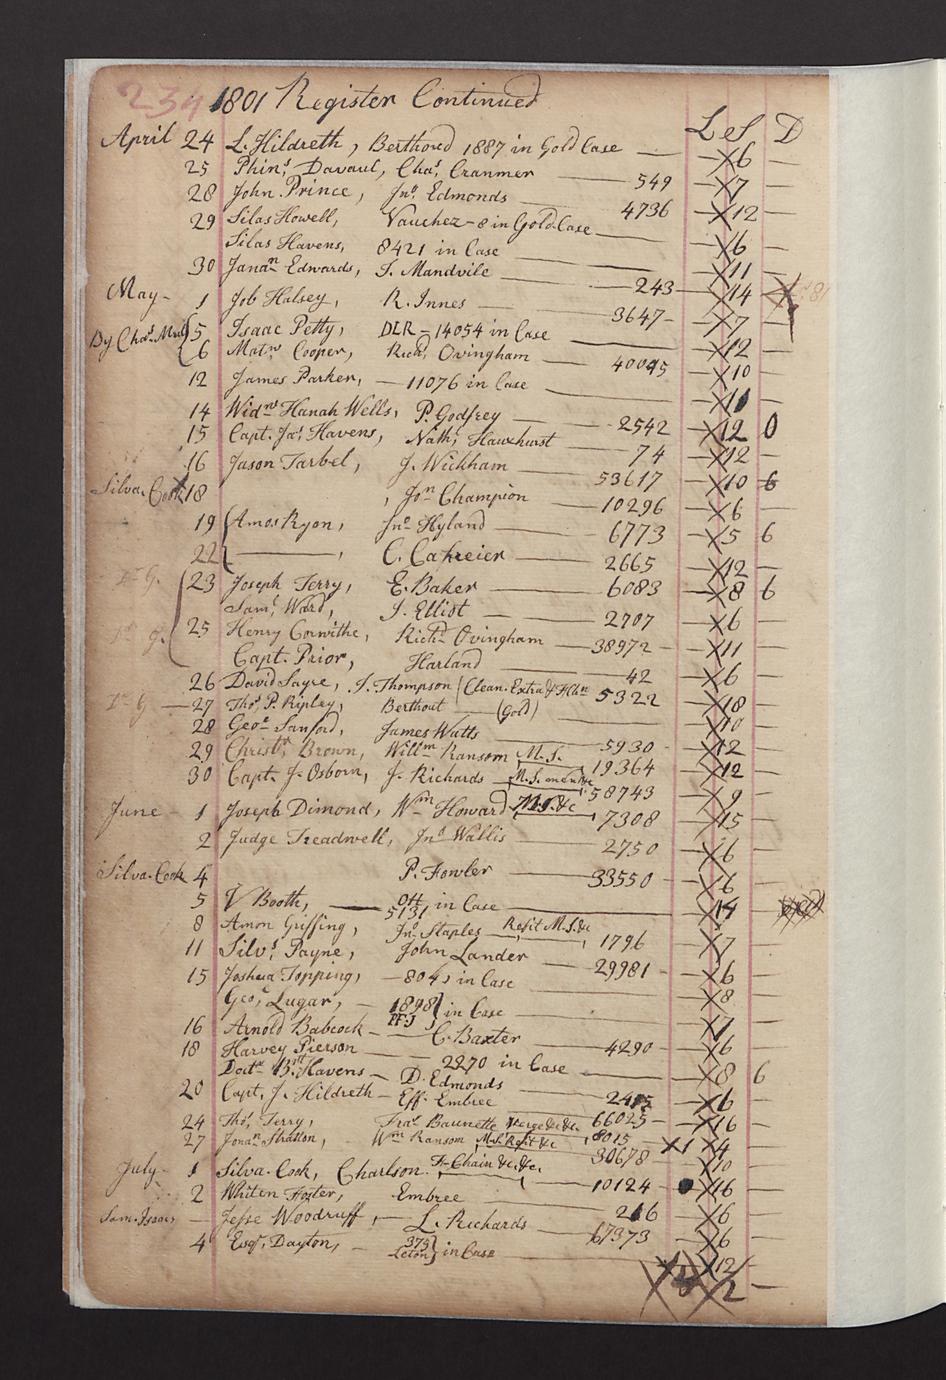 234 1801 Register Continued
L S D
April 24 L. Hildreth, Berthoud 1887 in Gold Case — X6 —
25 Phin.s Davaul, Cha.s Cranmer — 549 X7 —
28 John Prince, Jn.o Edmonds — 4736 X12 —
29 Silas Howell, Vauchez - 8 in Gold Case — X6 —
Silas Havens, 8421 in Case — X11 —
30 Jana.n Edwards, J. Mandvile — 243 — X14 —
May - 1 Job Halsey, R. Innes — 3647 — X7 —
By Cha.s 5 Isaac Petty, DLR - 14054 in Case — X12 —
6 Mat.w Cooper, Rich.d Ovingham — 40095 X10 —
12 James Parker, — 11076 in Case — X11 —
14 Wid.w Hanah Wells, P. Godfrey — 2542 X12 0
15 Capt. Ja.s Havens, Nath.l Hauxhurst — 74 X12 —
16 Jason Tarbel, J. Wickham — 53617 X10 6
Silva. Cook 18 , Jon Champion — 10296 X6 —
19 Amos Ryon, Jn.o Hyland — 6773 X5 6
22 —, C. Cahreier — 2665 X12 —
D.o G. 23 Joseph Terry, E. Baker — 6083 X8 6
Sam.l Ward, J. Elliot — 2707 X6 —
D.o G. 25 Henry Corwithe, Rich.d Ovingham — 38972 — X11 —
Capt. Prior, Harland — 42 X6 —
26 David Sayre, J. Thompson (Clean. Extra & 5322 X18 —
D.o G — 27 Tho.s P. Ripley, Berthout — (Gold) — X10 —
28 Geo.e Sanford, James Watts — 5930 - X12 —
29 Christ.r Brown, Will.m Ransom M.S. 19364 X12 —
30 Capt. J. Osborn, J. Richards M.S. 58743 X9 —
June - 1 Joseph Dimond, W.m Howard M.S. &c 7308 X15 —
2 Judge Treadwell, Jn.o Wallis — 2750 X6 —
Silva. Cook 4 P. Fowler — 33550 — X6 —
5 V Booth, — Ott in Case — X14
5131
8 Amon Griffing, Jn.o Staples Refit M.S. &c 1796 X7 —
11 Silv.s Payne, John Lander — 29981 — X6 —
15 Joshua Topping, — 804 in Case — X8 —
Geo.e Lugar, — 1898 PFJ } in Case — X7 —
16 Arnold Babcock — C. Baxter — 4290 — X6 —
18 Harvey Pierson — 2270 in Case — X8 6
Doct.r Havens — D. Edmonds — X6 —
20 Capt. J. Hildreth — Eff. Embree 2415 X16 —
24 Tho.s Terry, Fra.s Baunette Verge &c &c 66025 X1 X4 —
27 Jona.n Stratton, - W.m Ransom M.S. Refit &c 8015 X10 —
30678
July - 1 Silva. Cook, Charlson. F-Chain &c. &c. 10124 — X16 —
2 Whiten Foster, Embree — 216 X6 —
Sam. Isaacs — Jesse Woodruff, — L. Richards — 67373 X6 —
4 Esq.r Dayton, — 375 Leton } in Case X12 —
2 —